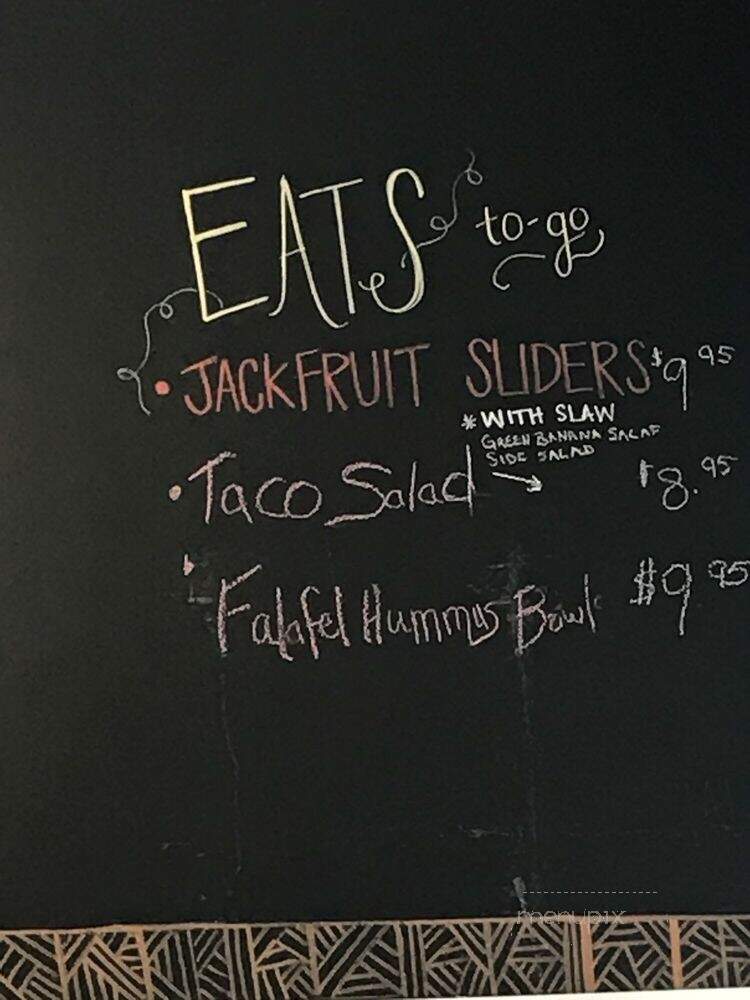 EATS to-go
• JACKFRUIT SLIDERS $9 95
* WITH SLAW
GREEN BANANA SALAF
SIDE SALAD
• Taco Salad → $8.95
Falafel Hummus Bowl $9 95
menupix